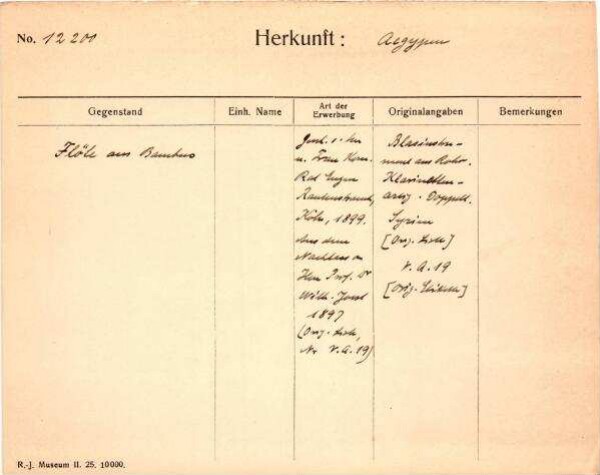 No. 12200 Herkunft: Aegypten
Gegenstand Einh. Name Art der Erwerbung Originalangaben Bemerkungen
Flöte aus Bambus
Gesch. v. Herrn
u. Frau Kom.
Rat Eugen
Rautenstrauch,
Köln, 1899.
Aus dem
Nachlass v.
Herrn Prof. Dr
Wilh. Joest
1897
(Orig. Liste,
Nr V.A.19)
Blasinstru-
ment aus Rohr.
Klarinetten-
artig. Doppelt.
Syrien
[Orig. Liste]
V.A.19
[Orig. Etikett]
R.-J. Museum II. 25. 10000.